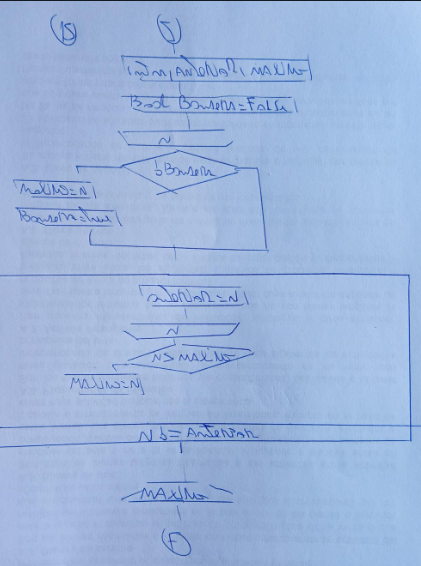 15
I
int n, ANTERIOR, MAXIMO
Bool Bandera=False
N
!Bandera
MAXIMO=N
Bandera=true
anterior=N
N
N>MAXIMO
MAXIMO=N
N != Anterior
MAXIMO
F